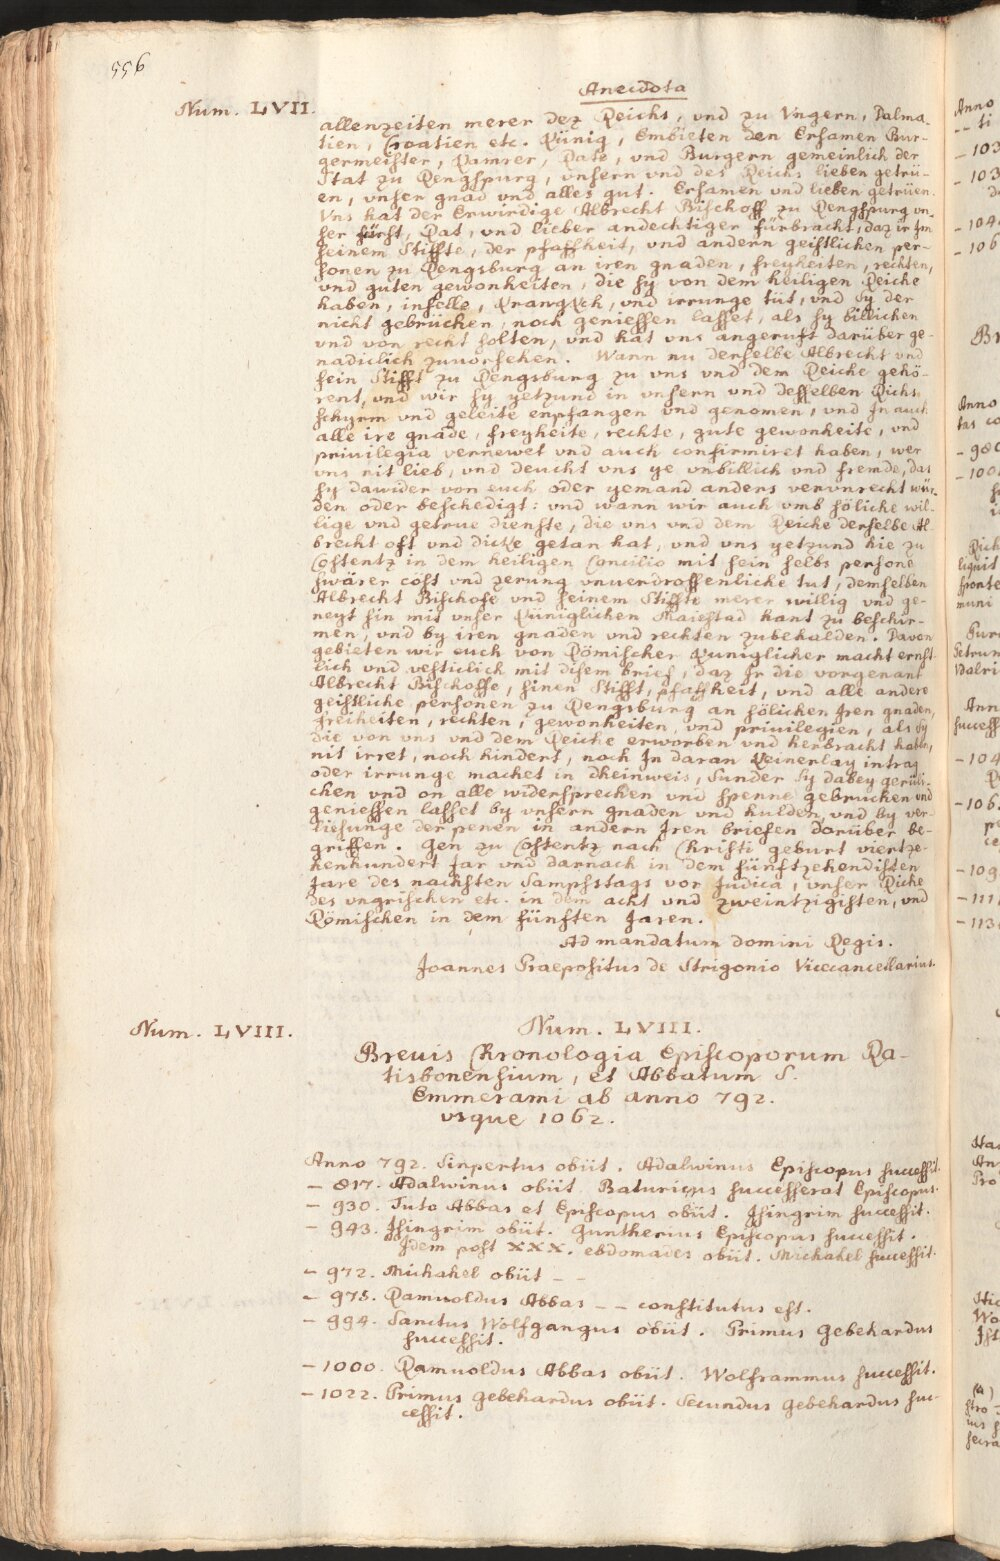 556
Anecdota
Num. LVII.
allenzeiten merer dez Reichs, vnd zu Vngern, Dalma-
tien, Croatien etc. Künig, Embieten den Ersamen Bur-
germeister, Kamrer, Rate, vnd Burgern gemeinlich der
Stat zu Rengspurg, vnsern vnd des Reichs lieben getrü-
en, vnser gnad vnd alles gut. Ersamen vnd lieben getrüen.
Vns hat der Erwirdige Albrecht Bischoff zu Rengspurg vn-
ser fürst, Rat, vnd lieber andechtiger fürbracht, daz ir Im
seinem Stiffte, der pfaffheit, vnd andern geistlichen per-
sonen zu Rengsburg an iren gnaden, freyheiten, rechten,
vnd guten gewonheiten, die sy von dem heiligen Reiche
haben, infelle, vnd irrunge tüt, vnd sy der
nicht gebrüchen, noch geniessen lasset, als sy billichen
vnd von recht solten, vnd hat vns angeruft darüber ge-
nadiclich zuuorsehen. Wann nu derselbe Albrecht vnd
sein Stifft zu Rengsburg zu vns vnd dem Reiche gehö-
rent, vnd wir sy yetzund in vnsern vnd desselben Richs
schyrm vnd geleite enpfangen vnd genomen, vnd In auch
alle ire gnade, freyheite, rechte, gute gewonheite, vnd
privilegia vernewet vnd auch confirmiret haben, wer
vns nit lieb, vnd deucht vns ye vnbillich vnd fremde, das
sy dawider von euch oder yemand anders verunrecht wür-
den oder beschedigt: vnd wann wir auch vmb söliche wil-
lige vnd getrue dienste, die vns vnd dem Reiche derselbe Al-
brecht oft vnd dicke getan hat, vnd vns yetzund hie zu
Costentz in dem heiligen Concilio mit sein selbs persone
swärer cost vnd zerung vnuerdroffenliche tut, demselben
Albrecht Bischofe vnd seinem Stiffte merer willig vnd ge-
neyt sin mit vnser Küniglichen Maiestad hant zu beschir-
men, vnd by iren gnaden vnd rechten zubehalden. Davon
gebieten wir euch von Römischer Kuniglicher macht ernst-
lich vnd vesticlich mit disem brief, daz Ir die vorgenant
Albrecht Bischoffe, sinen Stifft, pfaffheit, vnd alle andere
geistliche personen zu Rengsburg an sölichen Iren gnaden,
freiheiten, rechten, gewonheiten, vnd privilegien, als sy
die von vns vnd dem Reiche erworben vnd herbracht haben,
nit irret, noch hindert, noch In daran keinerlay intrag
oder irrunge machet in dheinweis, Sunder sy dabey gerüli-
chen vnd on alle widersprechen vnd spenne gebruchen vnd
geniessen lasset by vnsern gnaden vnd hulden, vnd by ver-
liesunge der penen in andern Iren briefen darüber be-
griffen. Gen zu Costentz nach Christi geburt viertze-
henhundert Jar vnd darnach in dem fünftzehendisten
Jare des nachsten Sampstags vor Judica, vnser Riche
des vngrischen etc. in dem acht vnd zweintzigisten, vnd
Römischen in dem fünften Jaren.
Ad mandatum domini Regis.
Joannes Praepositus de Strigonio Vicecancellarius.
Num. LVIII.
Num. LVIII.
Brevis Chronologia Episcoporum Ra-
tisbonensium, et Abbatum S.
Emmerami ab anno 792.
vsque 1062.
Anno 792. Sinpertus obiit. Adalwinus Episcopus successit.
– 817. Adalwinus obiit. Baturicus successerat Episcopus.
– 930. Tuto Abbas et Episcopus obiit. Isingrim successit.
– 943. Isingrim obiit. Guntherius Episcopus successit.
Idem post XXX. ebdomades obiit. Michahel successit.
– 972. Michahel obiit – –
– 975. Ramuoldus Abbas – – constitutus est.
– 994. Sanctus Wolfgangus obiit. Primus Gebehardus
successit.
– 1000. Ramuoldus Abbas obiit. Wolframmus successit.
– 1022. Primus Gebehardus obiit. Secundus Gebehardus suc-
cessit.